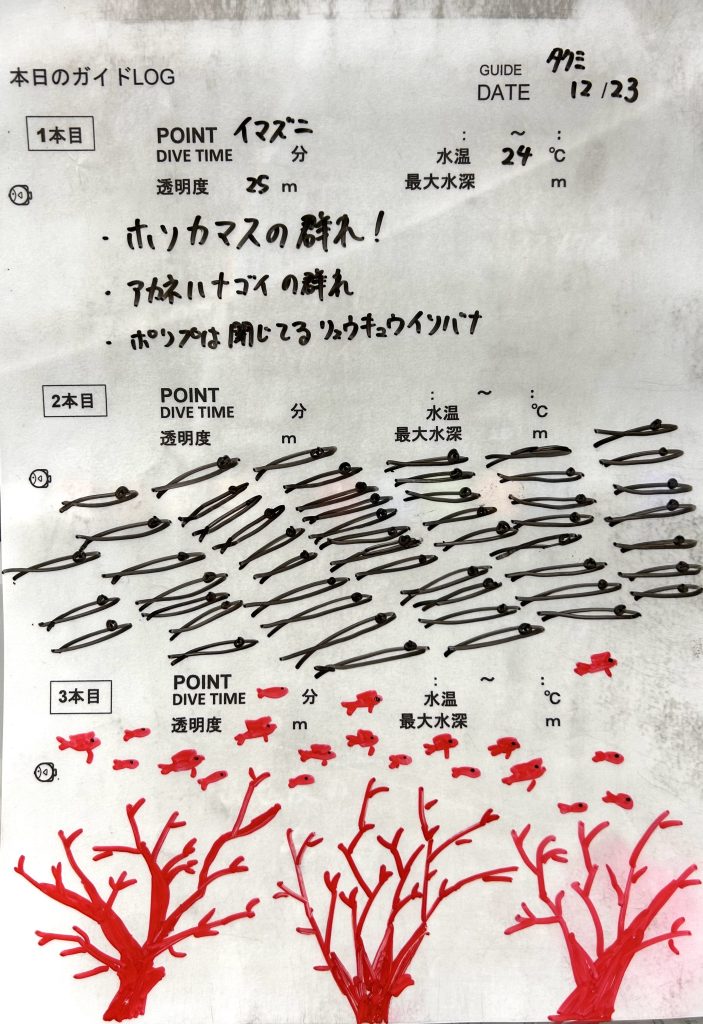 本日のガイドLOG
GUIDE タクミ
DATE 12/23
1本目 POINT イマズニ : ～ :
DIVE TIME 分 水温 24 ℃
透明度 25 m 最大水深 m
・ホソカマスの群れ!
・アカネハナゴイの群れ
・ポリプは閉じてるリュウキュウイソバナ
2本目 POINT : ～ :
DIVE TIME 分 水温 ℃
透明度 m 最大水深 m
3本目 POINT : ～ :
DIVE TIME 分 水温 ℃
透明度 m 最大水深 m